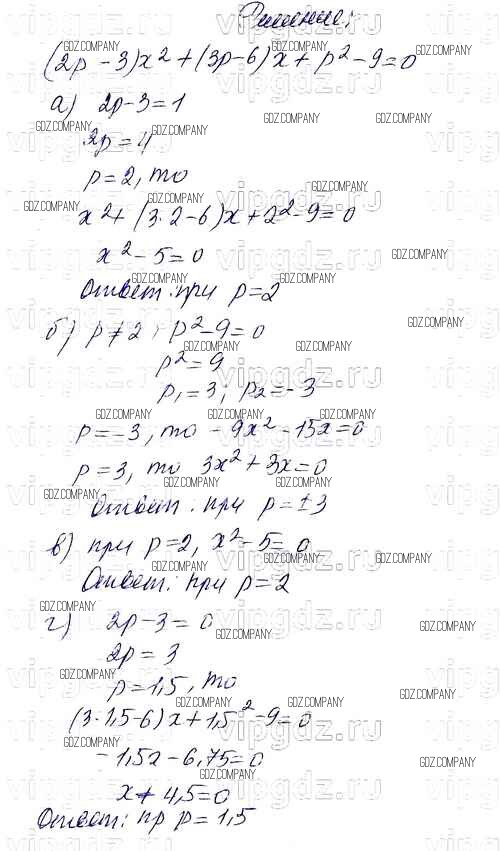 Решение:
(2p - 3)x² + (3p - 6)x + p² - 9 = 0
а) 2p - 3 = 1
2p = 4
p = 2, то
x² + (3·2 - 6)x + 2² - 9 = 0
x² - 5 = 0
Ответ: при p = 2
б) p ≠ 2, p² - 9 = 0
p² = 9
p₁ = 3; p₂ = -3
p = -3, то -9x² - 15x = 0
p = 3, то 3x² + 3x = 0
Ответ: при p = ±3
в) при p = 2, x² - 5 = 0
Ответ: при p = 2
г) 2p - 3 = 0
2p = 3
p = 1,5, то
(3·1,5 - 6)x + 1,5² - 9 = 0
-1,5x - 6,75 = 0
x + 4,5 = 0
Ответ: пр p = 1,5